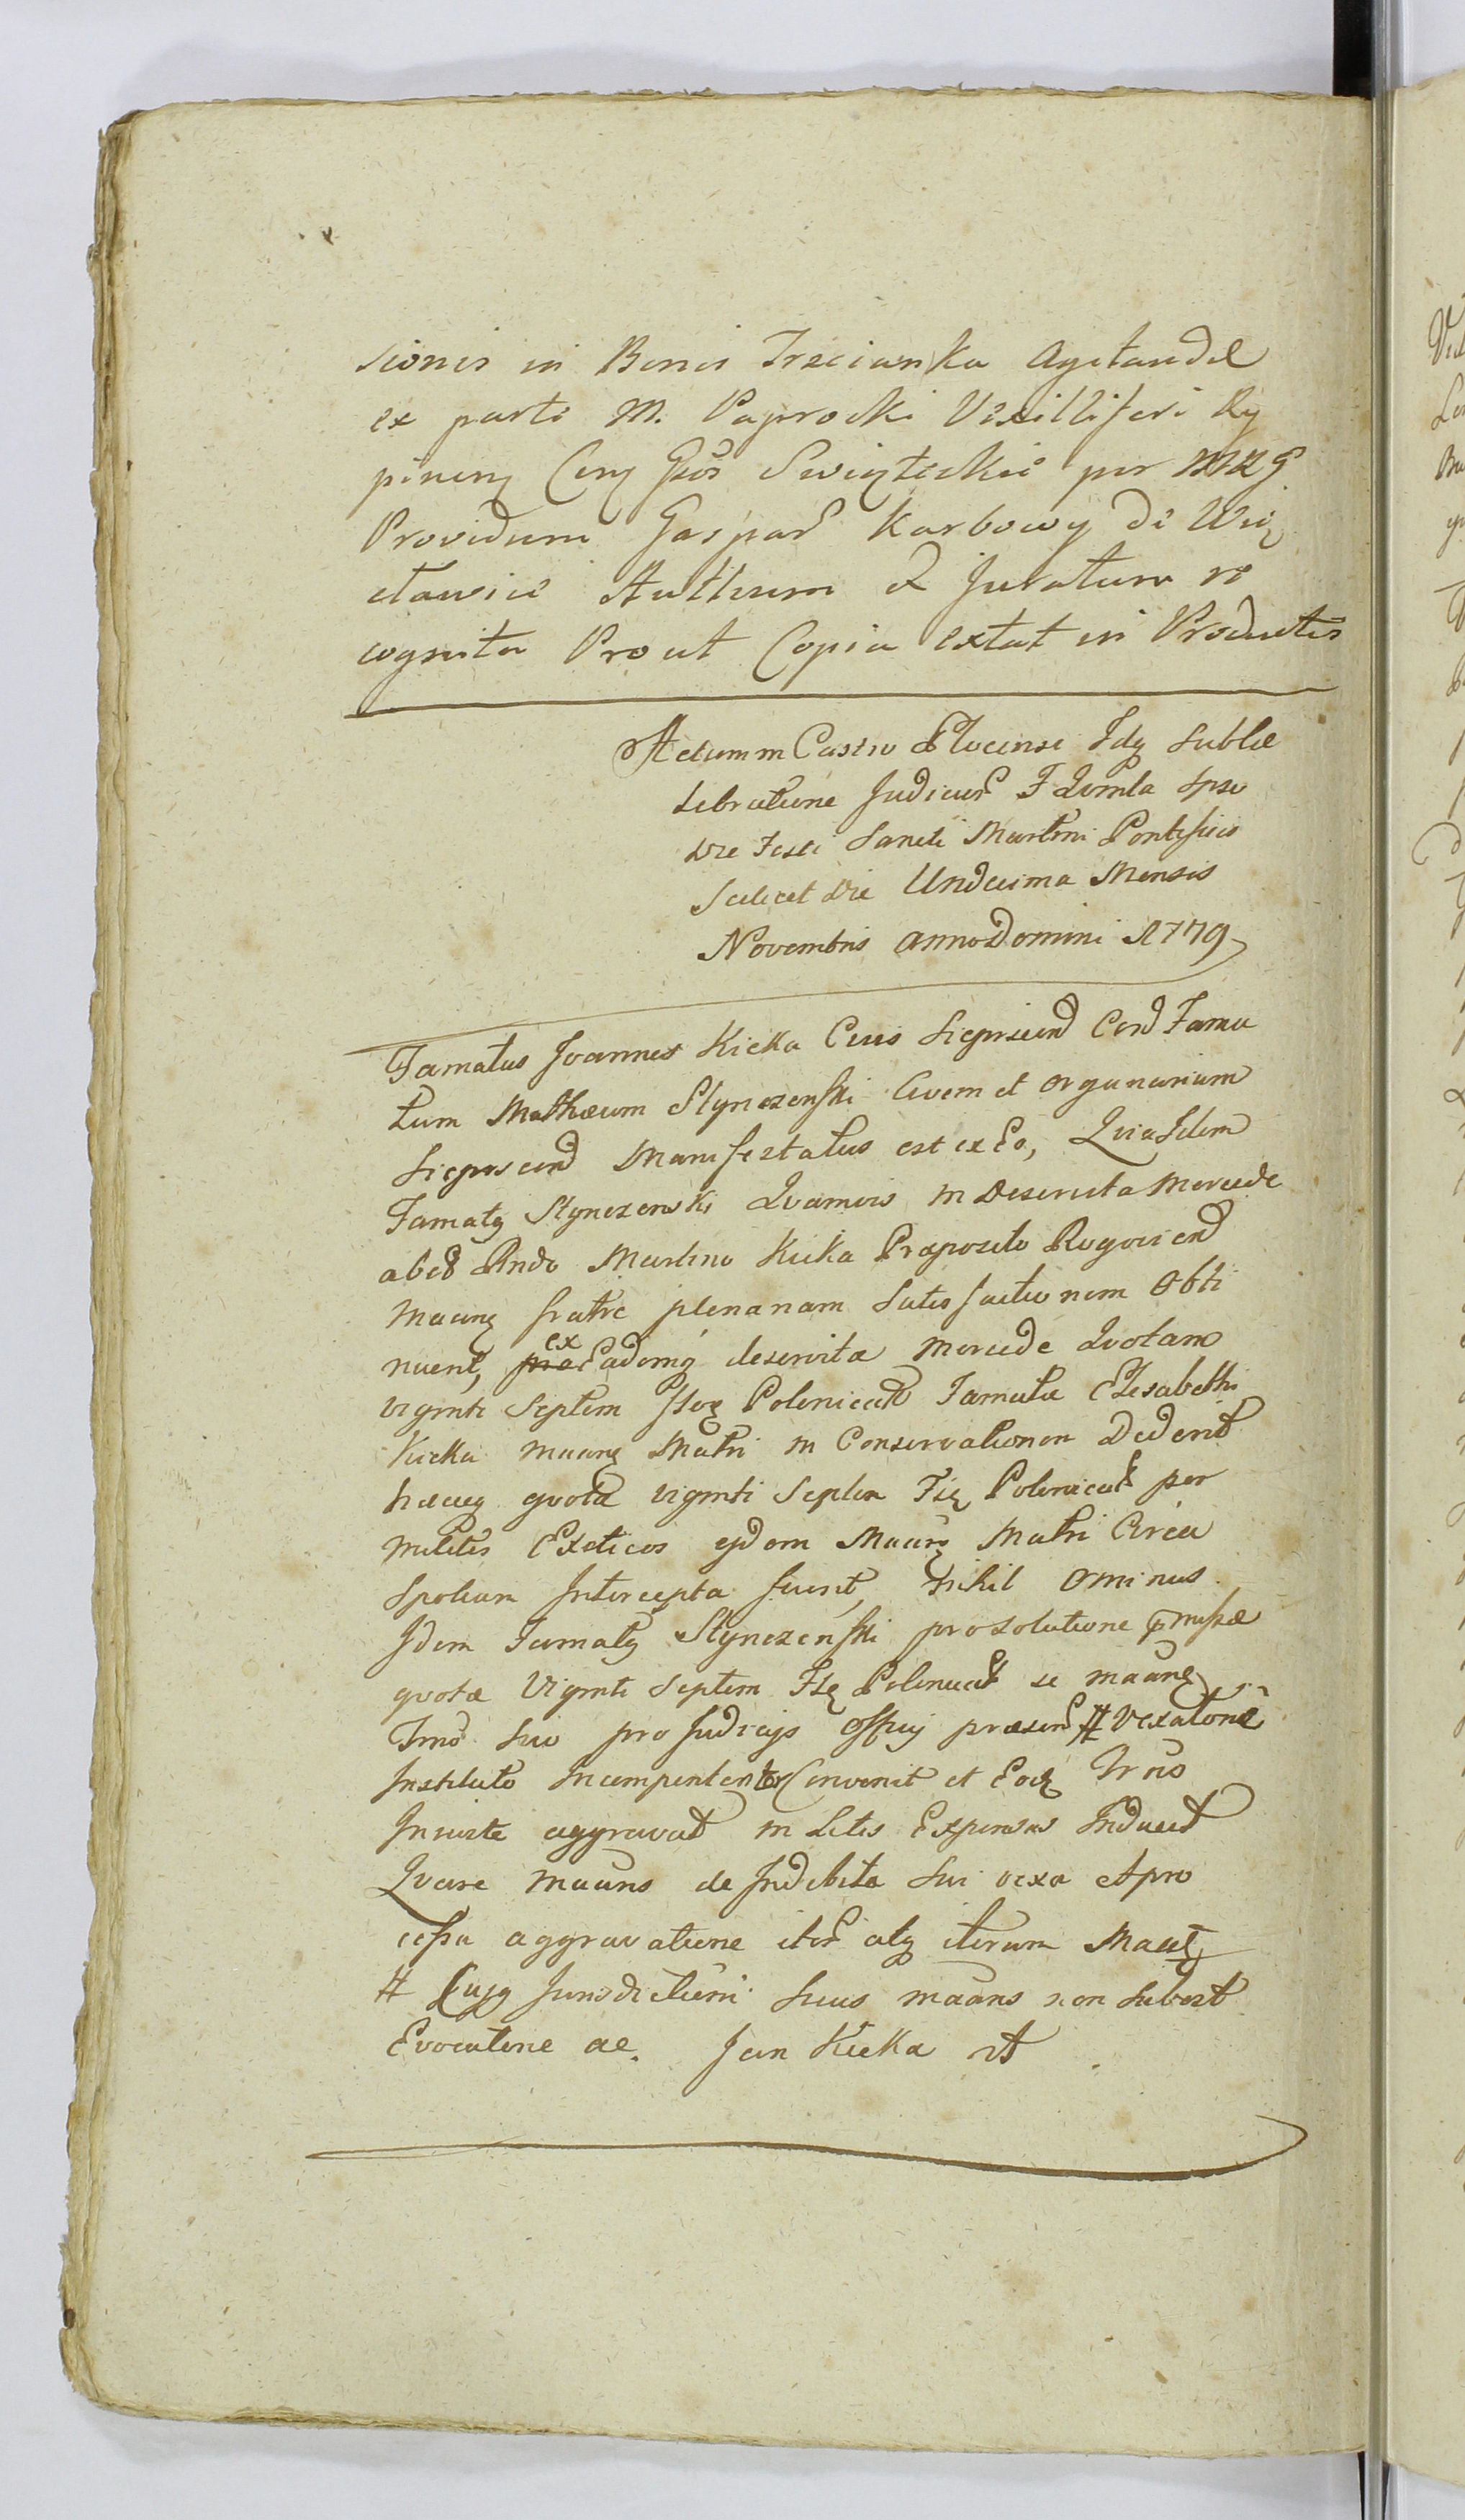 sionis in Bonis Trzcianka Agitandae
ex parte M. Paprocki Vexilliferi Ry
pinens Cons Gsos Swięteckie per MRG
Providum Gaspar Karbowy de Wię
cławice Authum & Juratum re
cognita Prout Copia extat in Productis
Actum in Castro Plocensi Fdq Sub Ce
lebratione Judicior F Qvrnla Ipso
Die Festi Sancti Martini Pontificis
Scilicet Die Undecima Mensis
Novembris Anno Domini 1779
Famatus Joannes Kicka Civis Sieprscens Cord Fama
tum Mathaeum Slynczenski Civem et Organarium
Sieprscens Manifestatus est ex Eo, Qvia Idem
Famatg Slynczenski Qvamvis in Deservita Mercede
abed Rndo Martino Kicka Praeposito Rogoviens
Maang fratre plenariam Satisfactionem Obti
nuerit, pro ex Eademq deservita Mercede Qvotam
viginti Septem Flog Polonical Famatae Elisabethi
Kicka Maang Matri in Conservationem Dederit
haecq qvota viginti Septem Flg Polonical per
Milites Exoticos ejdem Maang Matri Circa
Spolium Intercepta fuerit, nihil Ominus
Idem Famatg Slynczenski pro Solutione pmissae
qvotae Viginti Septem Flg Polonical se maang
Tmo Suo pro Judicijs Offcij praesen # Vexatone
Instituto Incompententer Convenit et Eoq Trno
Iniuste aggravat in Litis Expensas Inducit
Qvare Maans de Indebita Sui vexa et pro
cessu aggravatione iter atq iterum Maat
# Cujg Jurisdictioni Suus maans non Subest
Evocatione ae. Jan Kicka rt